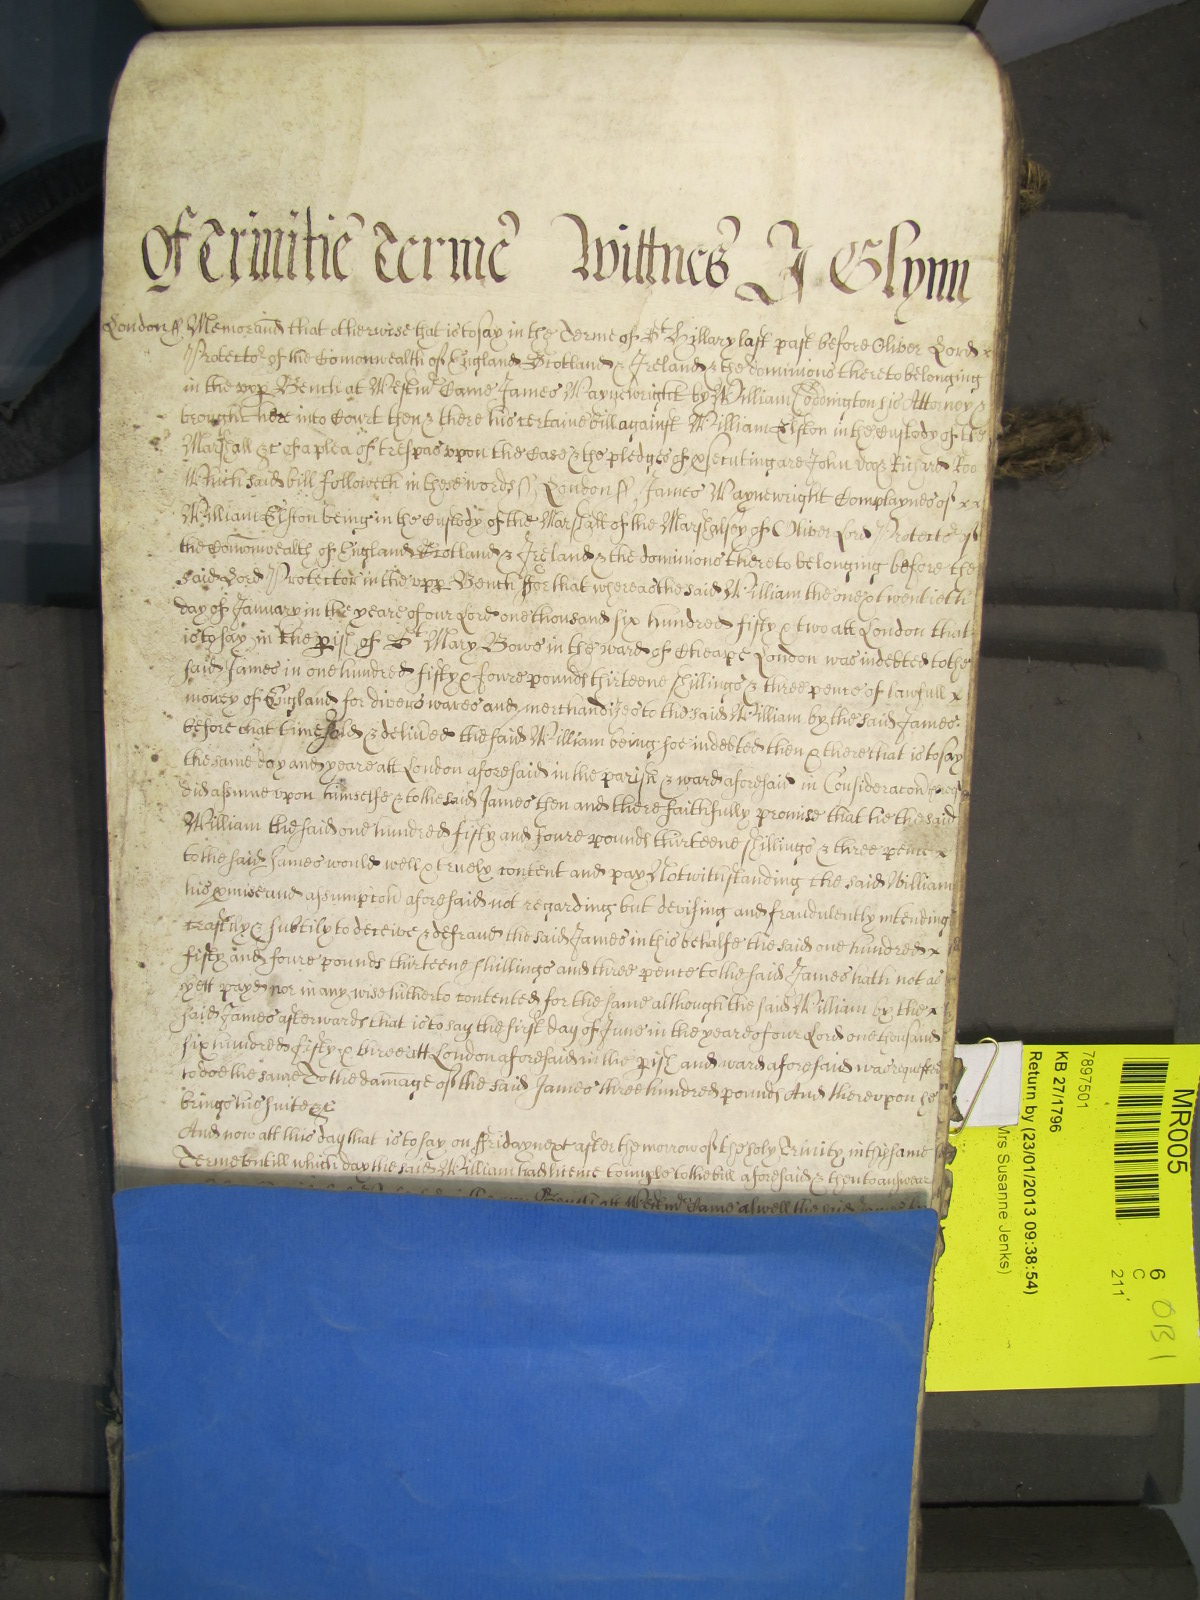 Of Trinitie Terme Wittnes J Glynn
London ss Memorand that otherwise that is to say in the Terme of St Hillary last past before Oliver Lord x
Protector of the Comonwealth of England Scotland & Ireland & the dominions thereto belonging
in the vpp Bench at Westmr Came James Waynewright by William Coddington his Attorney &
brought here into Court then & there his certaine bill against William Elston in the Custody of the
Marshall &c of a plea of trespas vpon the Case & the pledges of psecuting are John Doe & Richard Roo
Which said bill followeth in these words ss London ss James Waynewright Complaynes of x x
William Elston being in the Custody of the Marshall of the Marshalsey of Oliver Lord Protector of
the Comonwealth of England Scotland & Ireland & the dominions thereto belonging before the
said Lord Protector in the vpp Bench ffor that whereas the said William the one & twentieth
day of January in the yeare of our Lord one thousand six hundred fifty & two att London that
is to say in the pish of St Mary Bowe in the ward of Cheape London was indebted to the
said James in one hundred fifty & foure pounds thirteene shillings & three pence of lawfull x
money of England for divers wares and merchandizes to the said William by the said James
before that time sold & deliued the said William being soe indebted then & there that is to say
the same day and yeare att London aforesaid in the parish & ward aforesaid in Consideracon
did assume vpon himselfe & to the said James then and there faithfully promise that he the said
William the said one hundred fifty and foure pounds thirteene shillings & three pence x
to the said James would well & truely content and pay Notwithstanding the said William
his pmise and assumpcon aforesaid not regarding but devising and fraudulently intending
craftily & subtily to deceive & defraud the said James in this behalfe the said one hundred x
fifty and foure pounds thirteene shillings and three pence to the said James hath not as
yett payd nor in any wise hitherto contented for the same although the said William by the x
said James afterwards that is to say the first day of June in the yeare of our Lord one thousand
six hundred fifty & three att London aforesaid in the pish and ward aforesaid was requested
to doe the same To the damage of the said James three hundred pounds And therevpon he
brings his suite &c
And now att this day that is to say on ffriday next after the morrow of the holy Trinity in this same
Terme vntill which day the said William had licence to imple to the bill aforesaid & then to answeare
Bench att Westmr Came aswell the said James by
MR005
7897501
KB 27/1796
Return by (23/01/2013 09:38:54)
Mrs Susanne Jenks)
6
C
211'
OB1